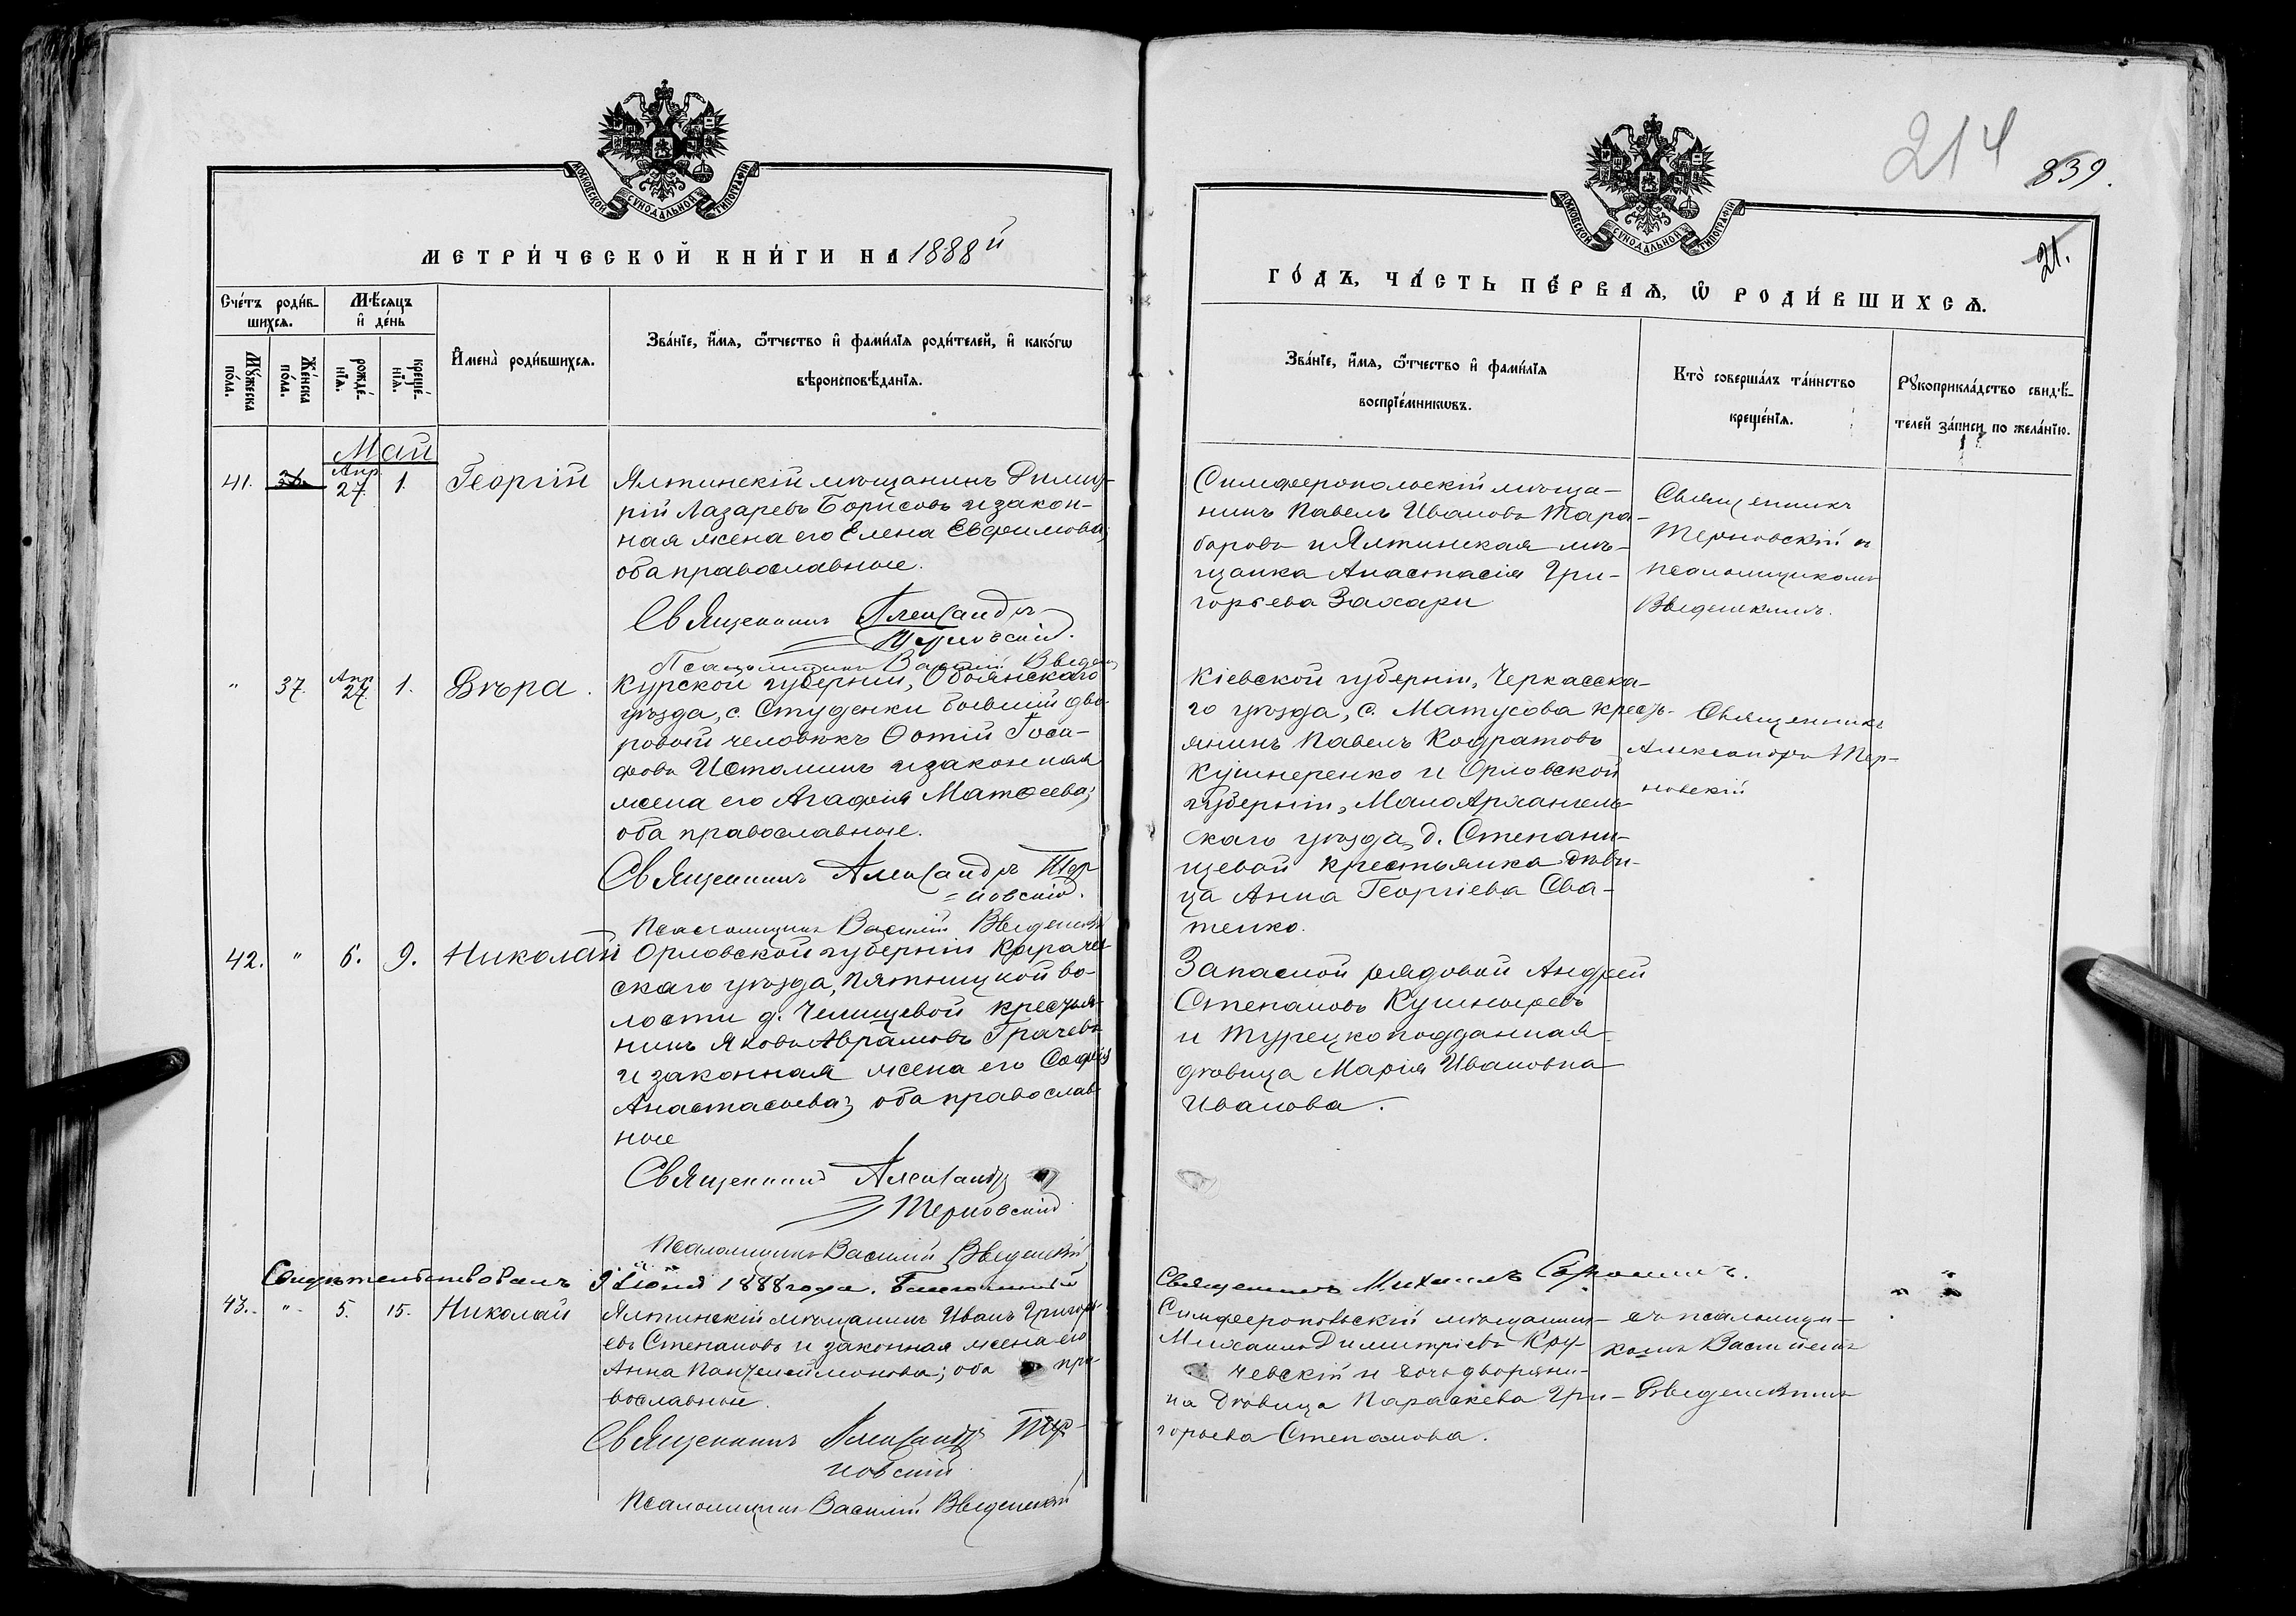 МОСКОВСКОЙ СУНОДАЛЬНОЙ ТИПОГРАФІИ
МЕТРИ́ЧЕСКОЙ КНИ́ГИ НА 1888й
Сче́тъ роди́в-
шихся.
Мѣ́сяцъ
и҆ де́нь
Му́жеска
по́ла.
Же́нска
по́ла.
рожде́-
нїя.
креще́-
нїя.
И҆мена̀ роди́вшихся.
Зва́нїе, и҆́мя, ѻ҆́тчество и҆ фами́лїя роди́телей, и҆ како́гѡ
вѣроисповѣ́данїя.
Май
41. 36. Апр. 27. 1. Георгій
Ялтинскій мѣщанинъ Димит-
рій Лазаревъ Борисовъ и закон-
ная жена его Елена Евфимова;
оба православные.
Священникъ Александръ
Терновскій.
Псаломщикъ Василій Введен
" 37. Апр. 27. 1. Вѣра.
Курской губерніи, Обоянскаго
уѣзда, с. Студенки бывший дво-
ровый человѣкъ Фотій Іоса-
фовъ Истоминъ и законная
жена его Агафія Матѳеева;
оба православные.
Священникъ Александръ Тер-
новскій.
Псаломщикъ Василій Введенскій
42. " 6. 9. Николай
Орловской губерніи Карачев-
скаго уѣзда, Пятницкой во-
лости д. Челищевой крестья-
нинъ Яковъ Аврамовъ Грачевъ
и законная жена его Софія
Анастасьева; оба православ-
ные
Священникъ Александръ
Терновскій
Псаломщикъ Василій Введенскій
Свидѣтельствовалъ 9 Іюня 1888 года. Благочинный
43. " 5. 15. Николай
Ялтинскій мѣщанинъ Иванъ Григорь-
евъ Степановъ и законная жена его
Анна Пантелеймонова; оба пра-
вославные.
Священникъ Александръ Тер-
новскій
Псаломщикъ Василій Введенскій
214
839.
21.
МОСКОВСКОЙ СУНОДАЛЬНОЙ ТИПОГРАФІИ
ГО́ДЪ, ЧА́СТЬ ПЕ́РВАЯ, Ѡ҆ РОДИ́ВШИХСЯ.
Зва́нїе, и҆́мя, ѻ҆́тчество и҆ фами́лїя
воспрїе́мникѡвъ.
Кто̀ соверша́лъ та́инство
креще́нїя.
Рꙋкоприкла́дство свидѣ́-
телей за́писи по жела́нїю.
Симферопольскій мѣща-
нинъ Павелъ Ивановъ Тара-
баровъ и Ялтинская мѣ-
щанка Анастасія Гри-
горьева Захари
Священникъ
Терновскій съ
псаломщикомъ
Введенскимъ.
Кіевской губерніи, Черкасска-
го уѣзда, с. Матусова кресть-
янинъ Павелъ Кодратовъ
Кушнеренко и Орловской
губерніи, МалоАрхангель-
скаго уѣзда, д. Степани-
щевой крестьянка дѣви-
ца Анна Георгіева Сва-
тенко.
Священникъ
Александръ Тер-
новскій
Запасной рядовой Андрей
Степановъ Кушныревъ
и Турецкоподданная
дѣвица Марія Ивановна
Иванова.
Священникъ Михаилъ
Симферопольскій мѣщанинъ
Михаилъ Димитріевъ Кру-
чевскій и дочь дворяни-
на дѣвица Параскева Гри-
горьева Степанова.
съ псаломщи-
комъ Василіемъ
Введенскимъ